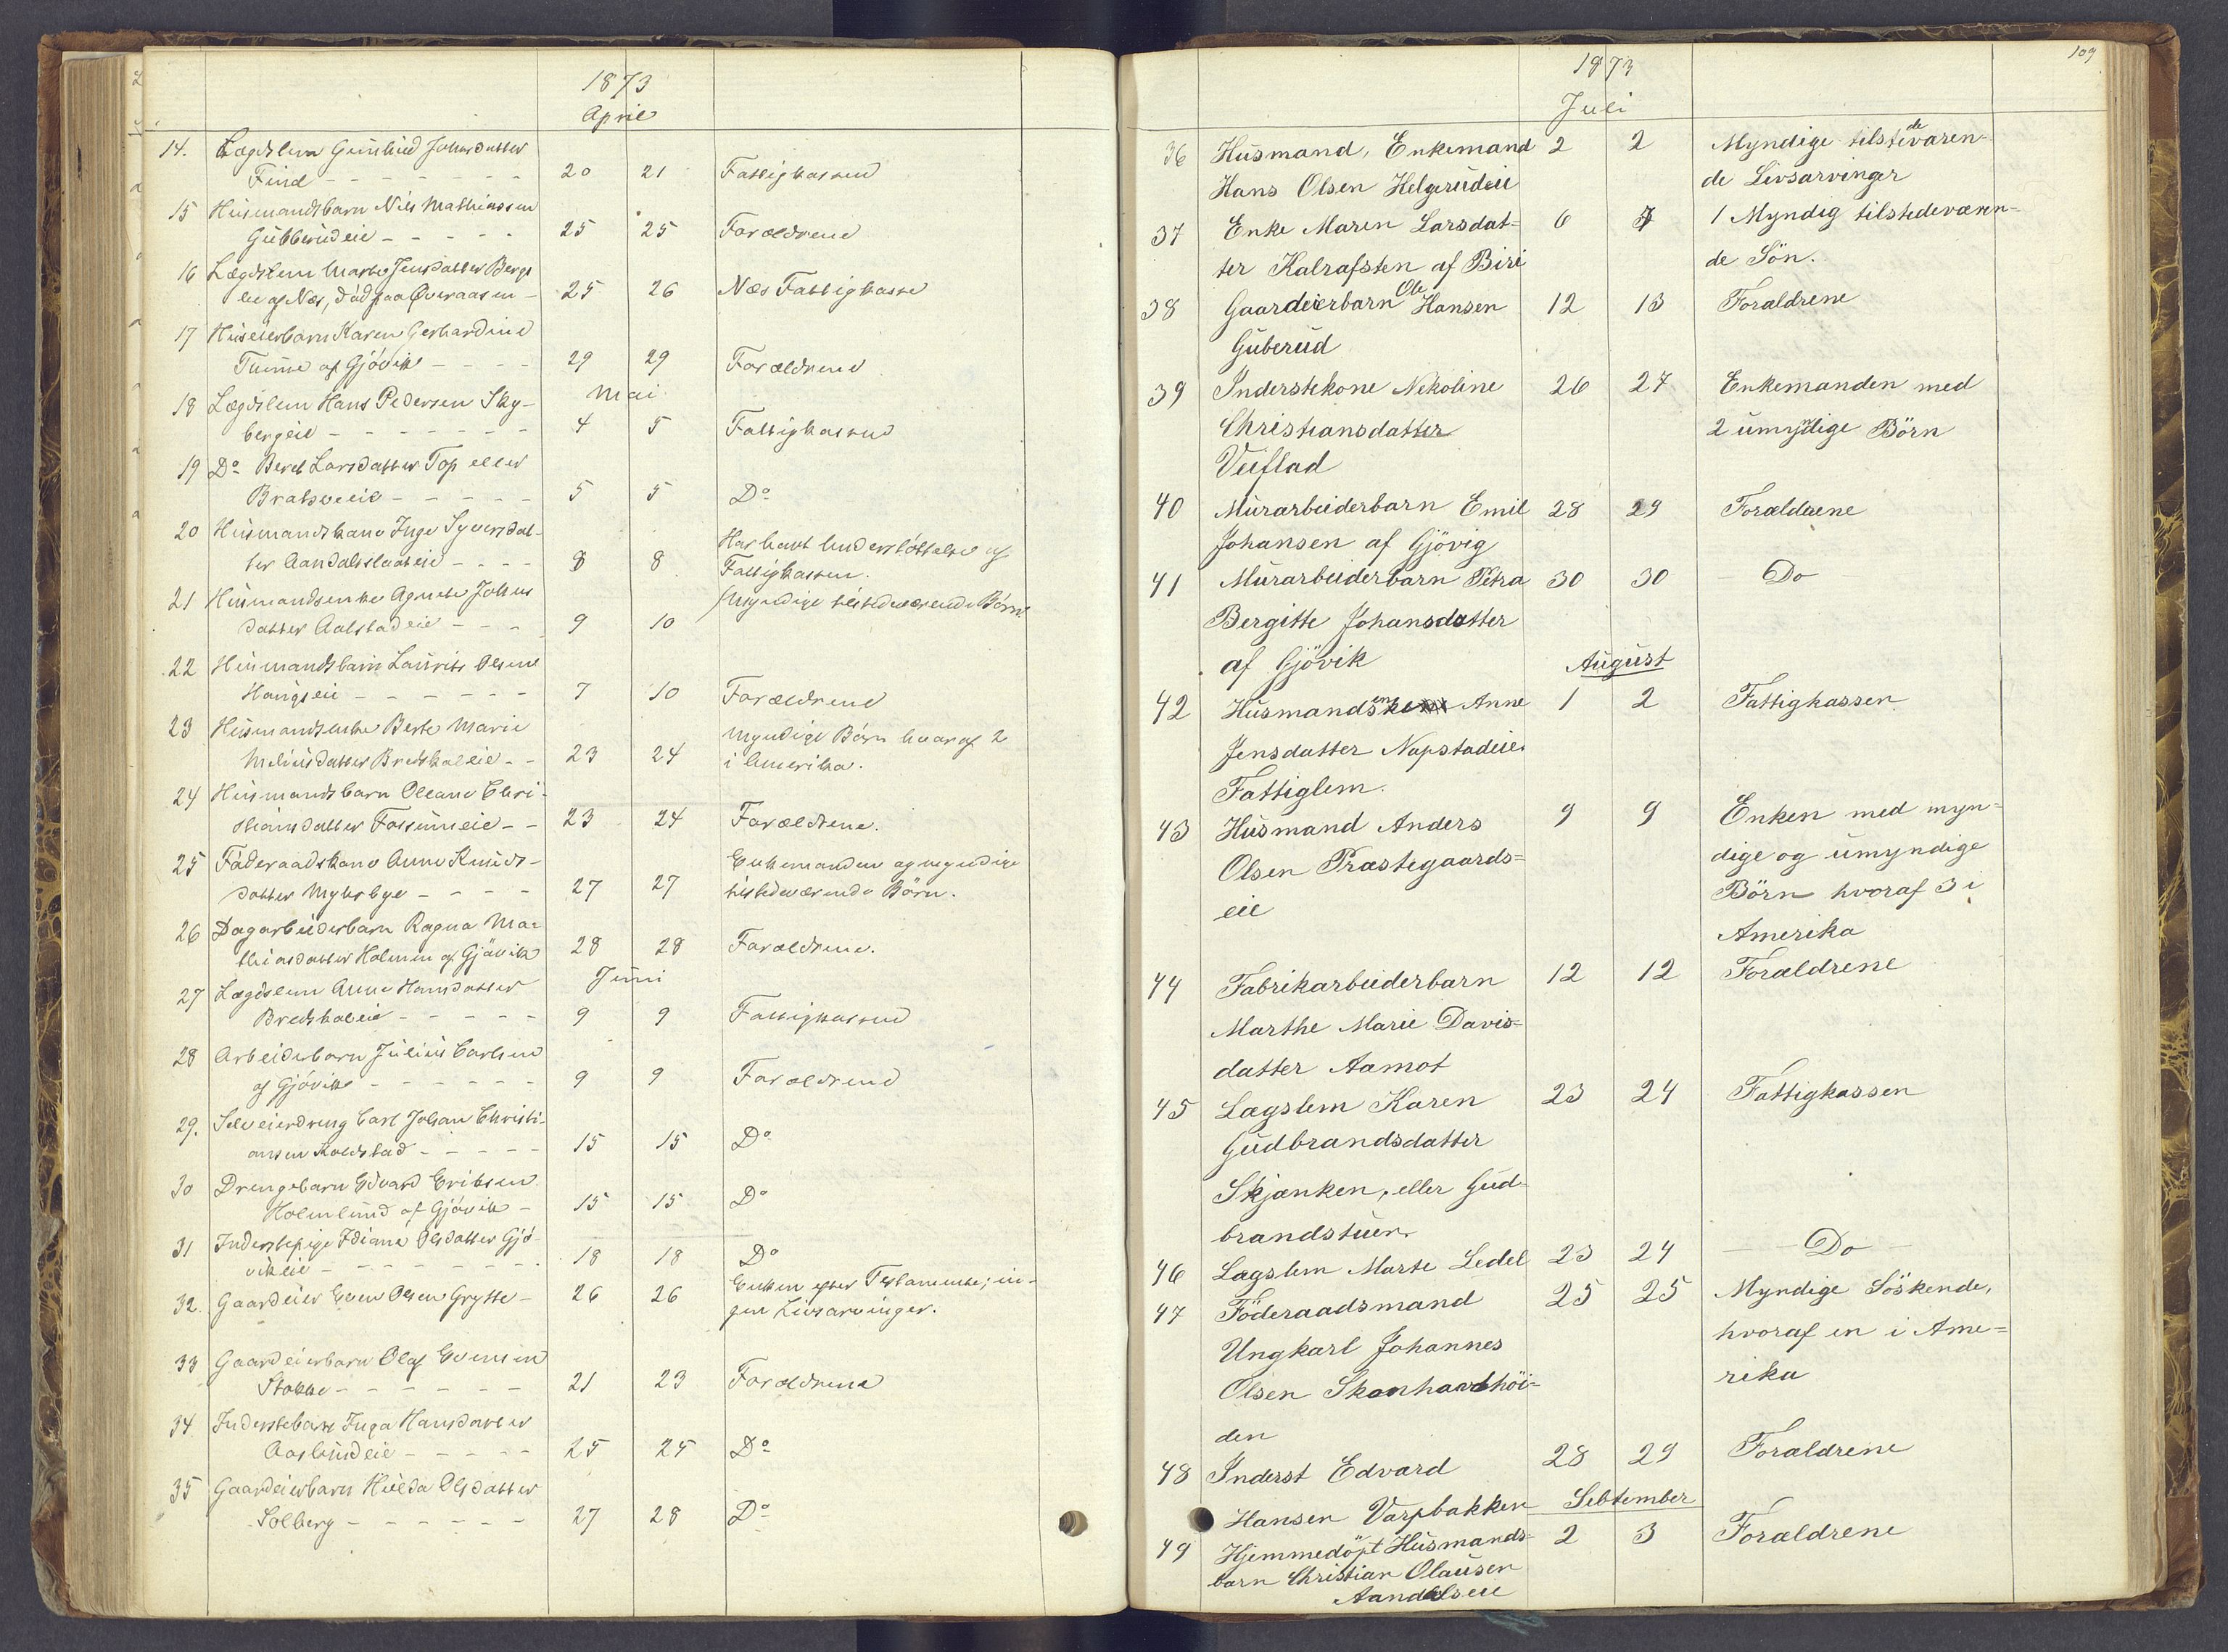 1873
April
14. Lægdslem Gunhild Johnsdatter
Find - - - - - - - 20 21 Fattigkassen
15 Husmandsbarn Nils Mathiassen
Gubberudeie - - - - - 25 25 Forældrene
16 Lægdslem Marthe Jensdatter Bergs
eie af Næs, død paa Øveraasen - 25 26 Næs Fattigkasse
17 Huseierbarn Karen Gerhardine
Tumme af Gjövik - - - - 29 29 Forældrene
Mai
18 Lægdslem Hans Pedersen Sky-
bergeie - - - - - - - 4 5 Fattigkassen
19 Do Beret Larsdatter Top eller
Bratsveeie - - - - - 5 5 Do
20 Husmandskone Inge Syversdat-
ter Aandalslaateie - - - - 8 8 Har havt Understöttelse af
Fattigkassen.
21 Husmandsenke Agnethe Johns
datter Aalstadeie - - - 9 10 Myndige tilstedeværende Börn.
22 Husmandsbarn Laurits Olsen
Haugseie - - - - - - 7 10 Forældrene
23 Husmandsenke Berte Marie
Meliusdatter Bredskaleie - - 23 24 Myndige Börn hvoraf 2
i Amerika.
24 Husmandsbarn Oleane Chri-
stiansdatter Fossumeie - - 23 24 Forældrene.
25 Föderaadskone Anne Knuds-
datter Myhrbye - - - - 27 27 Enkemanden og myndige
tilstedeværende Börn.
26 Dagarbeiderbarn Ragna Ma-
thiasdatter Holmen af Gjövik 28 28 Forældrene.
Juni
27 Lægdslem Anne Hansdatter
Bredskaleie - - - - - 9 9 Fattigkassen
28 Arbeiderbarn Julius Carlsen
af Gjövik - - - - - - 9 9 Forældrene
29. Selveierdreng Carl Johan Christi-
ansen Koldstad - - - - - 15 15 Do
30 Drengebarn Edvard Eriksen
Holmlund af Gjövik - 15 15 Do
31 Inderstepige Idiane Olsdatter Gjö-
vikeie - - - - - - - 18 18 Do
32. Gaardeier Even Olsen Grytte - 26 26 Enken efter Testamente; in-
gen Livsarvinger.
33 Gaardeierbarn Olaf Evensen
Stokke - - - - - - 21 23 Forældrene
34 Inderstebarn Inga Hansdatter
Aaslundeie - - - - - 25 25 Do
35 Gaardeierbarn Hulda Olsdatter
Solberg - - - - - - 27 28 Do
109
1873
Juli
36 Husmand, Enkemand 2 2 Myndige tilstedevaren-
Hans Olsen Helgerudeie de Livsarvinger
37 Enke Maren Larsdat- 6 7 1 Myndig tilstedeværen-
ter Kalrafsten af Biri de Sön.
38 Gaardeierbarn Ole Hansen 12 13 Foraldrene
Guberud
39 Inderstekone Nekoline 26 27 Enkemanden med
Christiansdatter 2 umydige Börn
Veiflad
40 Murarbeiderbarn Emil 28 29 Forældrene
Johansen af Gjövig
41 Murarbeiderbarn Petra 30 30 Do
Bergitte Johansdatter
af Gjövik
August
42 Husmandsenke Anne 1 2 Fattigkassen
Jensdatter Napstadeie.
Fattiglem.
43 Husmand Anders 9 9 Enken med myn-
Olsen Præstegaards- dige og umyndige
eie Börn hvoraf 3 i
Amerika
44 Fabrikarbeiderbarn 12 12 Forældrene
Marthe Marie Davis-
datter Aamot
45 Lægslem Karen 23 24 Fattigkassen
Gudbrandsdatter
Skjænken, eller Gud-
brandstuen
46 Lægslem Marte Ledel 23 24 Do
47 Föderaadsmand 25 25 Myndige Söskende,
Ungkarl Johannes hvoraf en i Ame-
Olsen Skonhardhöi- rika
den
48 Inderst Edvard 28 29 Foraldrene
Hansen Varpbakken
Sebtember
49 Hjemmedöpt Husmands- 2 3 Foraldrene
barn Christian Olausen
Aandalseie